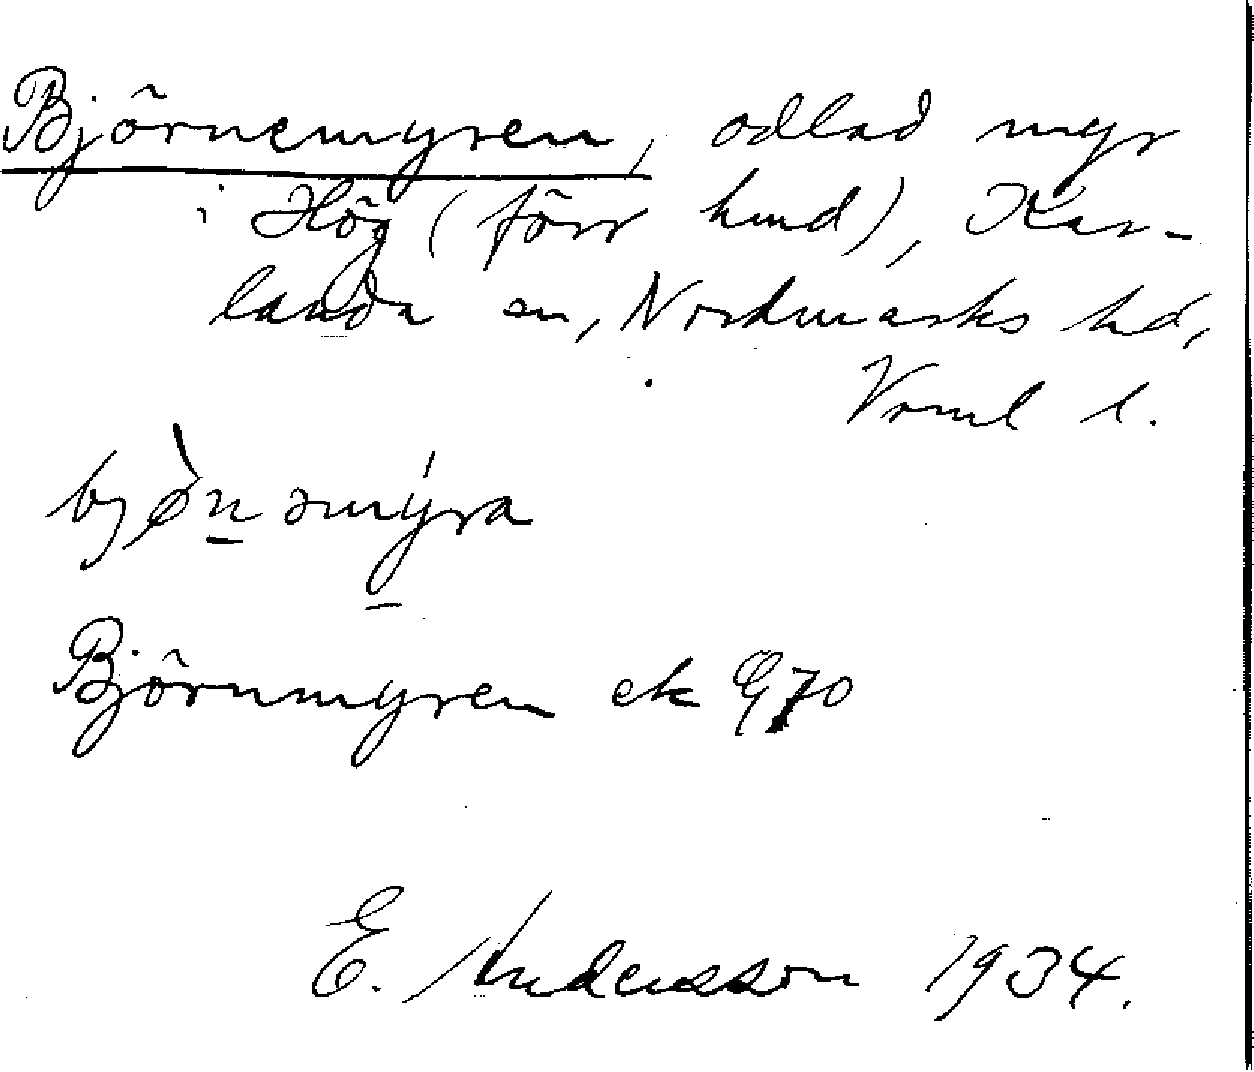 Björnemyren, odlad myr
i Hög (förr hmd), Kar-
landa sn, Nordmarks hd,
Vrml l.
bjòn əmýra
Björnmyren ek G70
E. Andersson 1934.